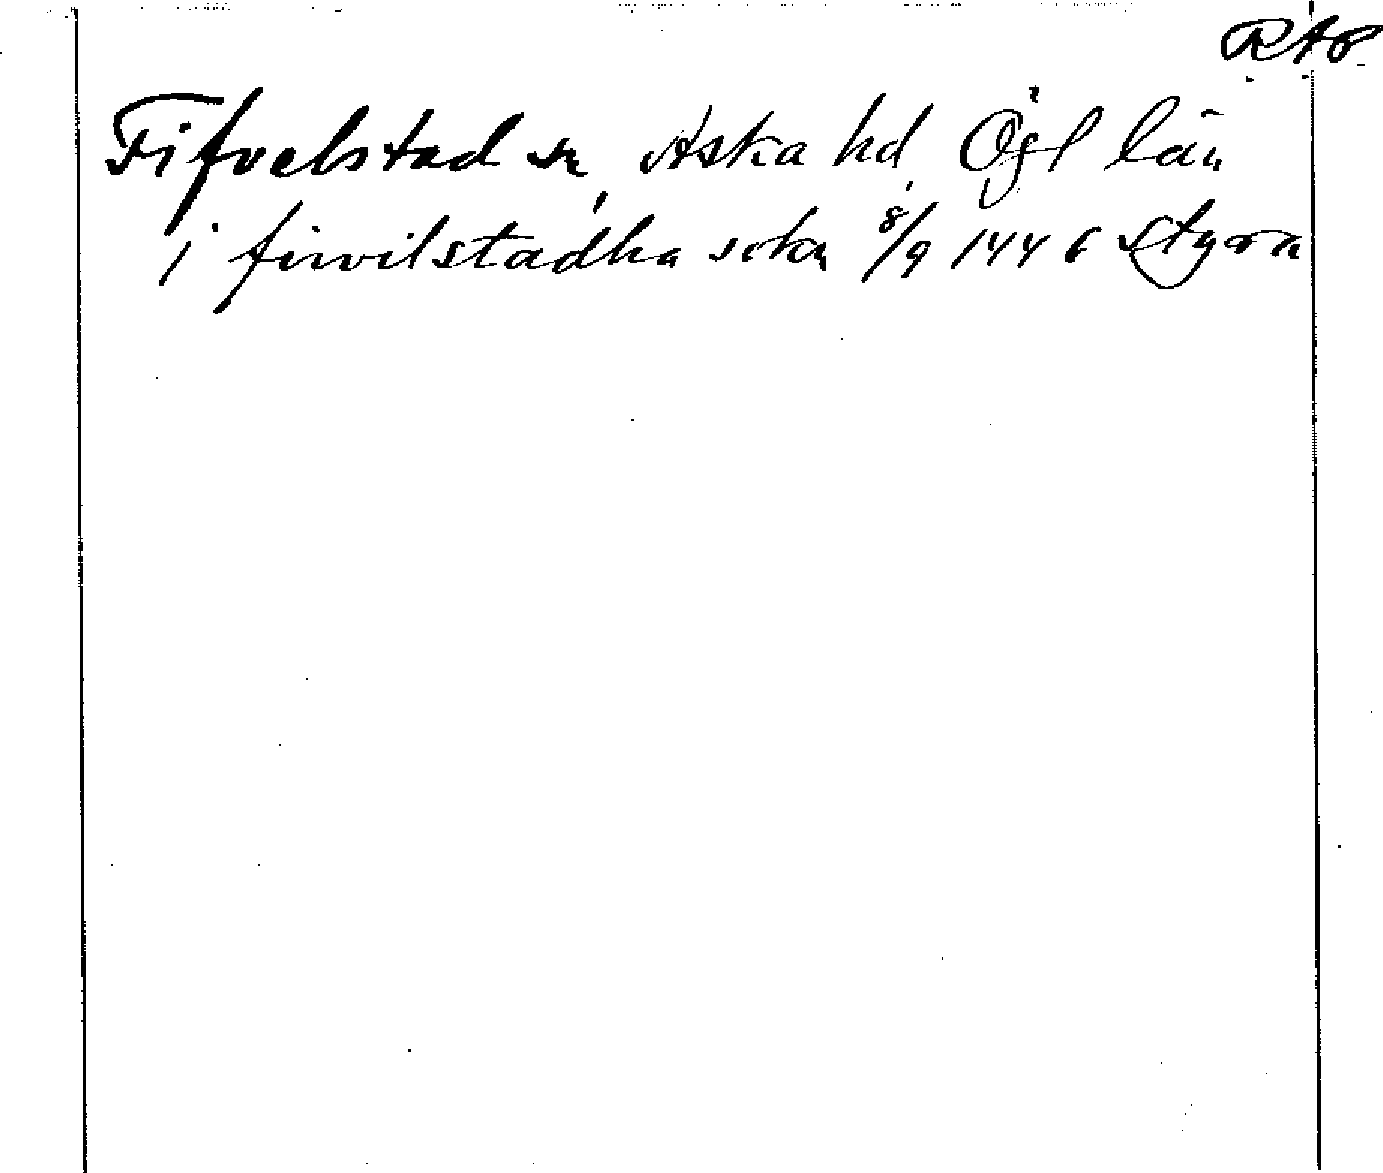 RAP
Fifvelstad sn, Aska hd, Ögl län
i fiwilstadha sokn 8/9 1446 Styra